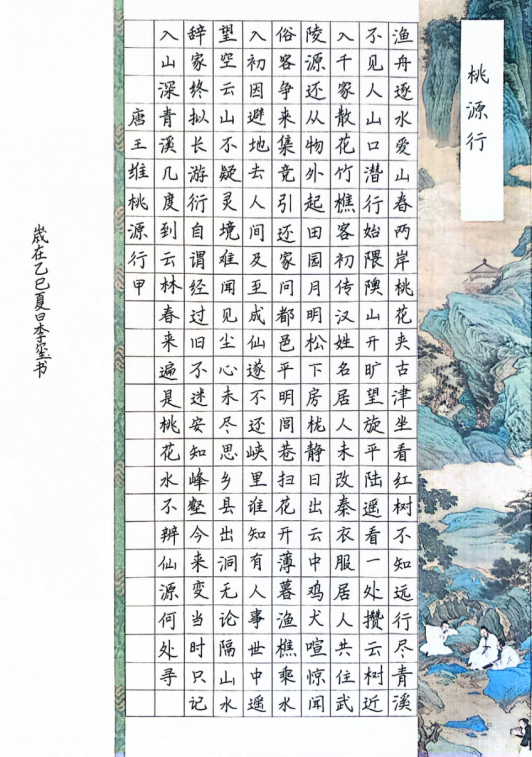 桃源行
渔舟逐水爱山春两岸桃花夹古津坐看红树不知远行尽青溪
不见人山口潜行始隈隩山开旷望旋平陆遥看一处攒云树近
入千家散花竹樵客初传汉姓名居人未改秦衣服居人共住武
陵源还从物外起田园月明松下房栊静日出云中鸡犬喧惊闻
俗客争来集竞引还家问都邑平明闾巷扫花开薄暮渔樵乘水
入初因避地去人间及至成仙遂不还峡里谁知有人事世中遥
望空云山不疑灵境难闻见尘心未尽思乡县出洞无论隔山水
辞家终拟长游衍自谓经过旧不迷安知峰壑今来变当时只记
入山深青溪几度到云林春来遍是桃花水不辨仙源何处寻
唐王维桃源行甲
岁在乙巳夏日李书